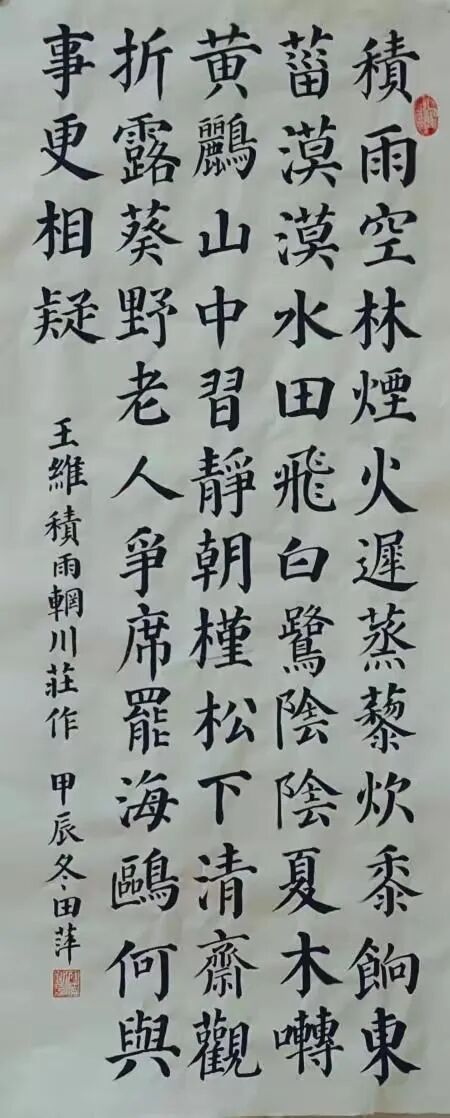 積雨空林煙火遲蒸藜炊黍餉東
菑漠漠水田飛白鷺陰陰夏木囀
黄鸝山中習靜朝槿松下清齋觀
折露葵野老人爭席罷海鷗何與
事更相疑
王維積雨輞川莊作 甲辰冬田萍